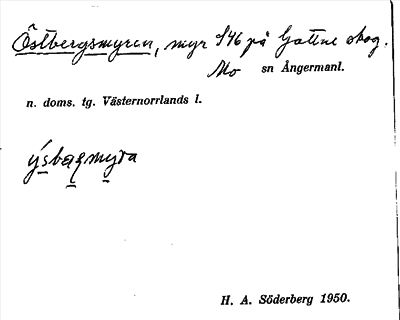 Östbergsmyren, myr 546 på Gottne skog.
Mo sn Ångermanl.
n. doms. tg. Västernorrlands l.
ýsbaqmyra
H. A. Söderberg 1950.